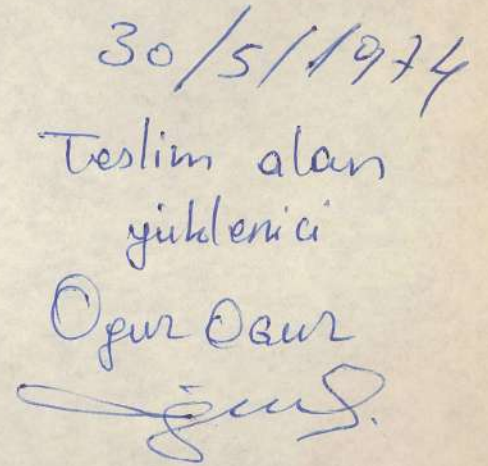 30/5/1974
Teslim alan
yüklenici
Ogur